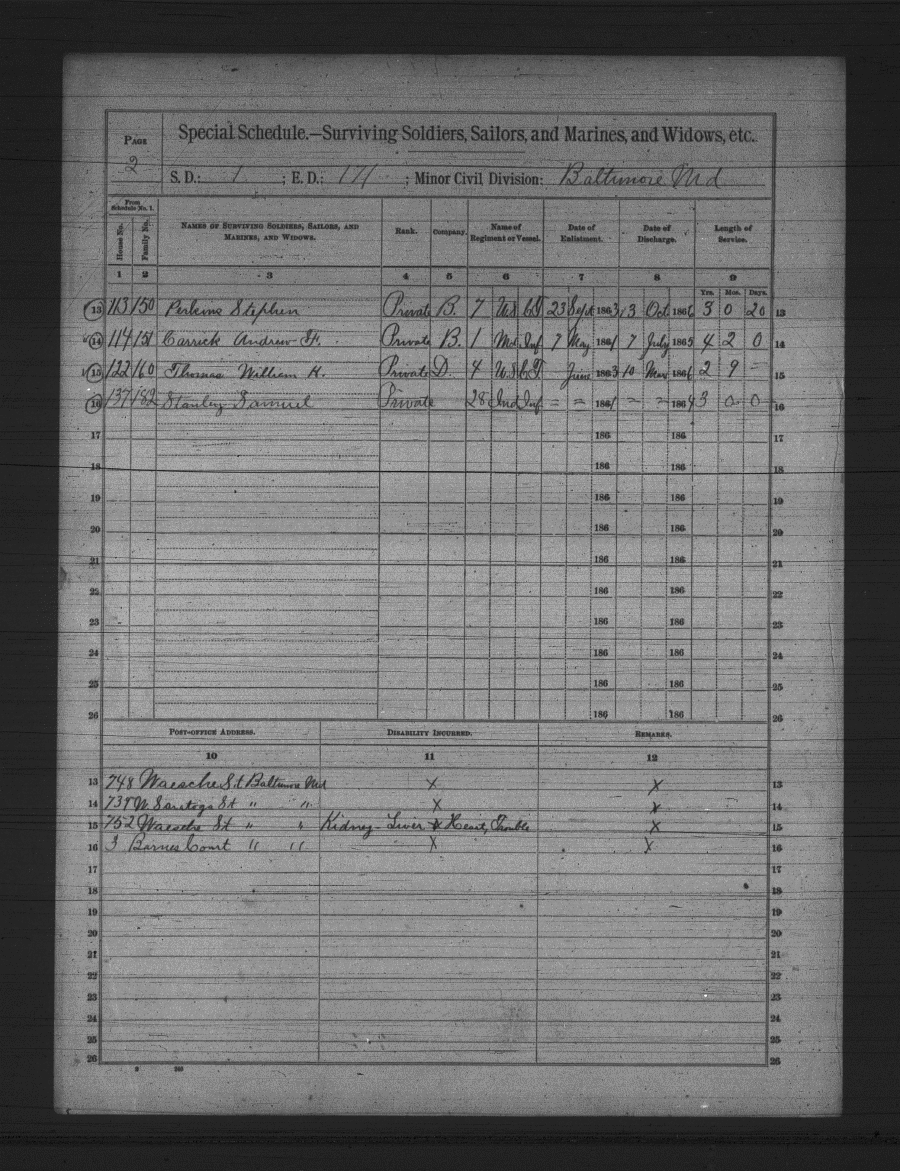 Page 2
Special Schedule.—Surviving Soldiers, Sailors, and Marines, and Widows, etc.
S. D.: 1 ; E. D.: 174 ; Minor Civil Division: Baltimore Md
From Schedule No. 1.
House No. Family No. Names of Surviving Soldiers, Sailors, and Marines, and Widows. Rank. Company. Name of Regiment or Vessel. Date of Enlistment. Date of Discharge. Length of Service.
1 2 3 4 5 6 7 8 9
Yrs. Mos. Days.
13 113 150 Perkins Stephen Private B. 7 U.S.C.I 23 Sept 1863 13 Oct 1866 3 0 20 13
14 114 151 Carrick Andrew F. Private B. 1 Md. Inf 7 May 1861 7 July 1865 4 2 0 14
15 122 160 Thomas William H. Private D. 4 U.S.C.T June 1863 10 Mar 1866 2 9 – 15
16 137 182 Stanley Samuel Private 28 Ind Inf = = 1861 – – 1864 3 0 0 16
17 186 186 17
18 186 186 18
19 186 186 19
20 186 186 20
21 186 186 21
22 186 186 22
23 186 186 23
24 186 186 24
25 186 186 25
26 186 186 26
Post-office Address. Disability Incurred. Remarks.
10 11 12
13 748 Waesche St Baltimore Md X X 13
14 W Saratoga St " " X X 14
15 752 Waesche St " " Kidney Liver & Heart Trouble X 15
16 3 Barnes Court " " X X 16
17 17
18 18
19 19
20 20
21 21
22 22
23 23
24 24
25 25
26 26